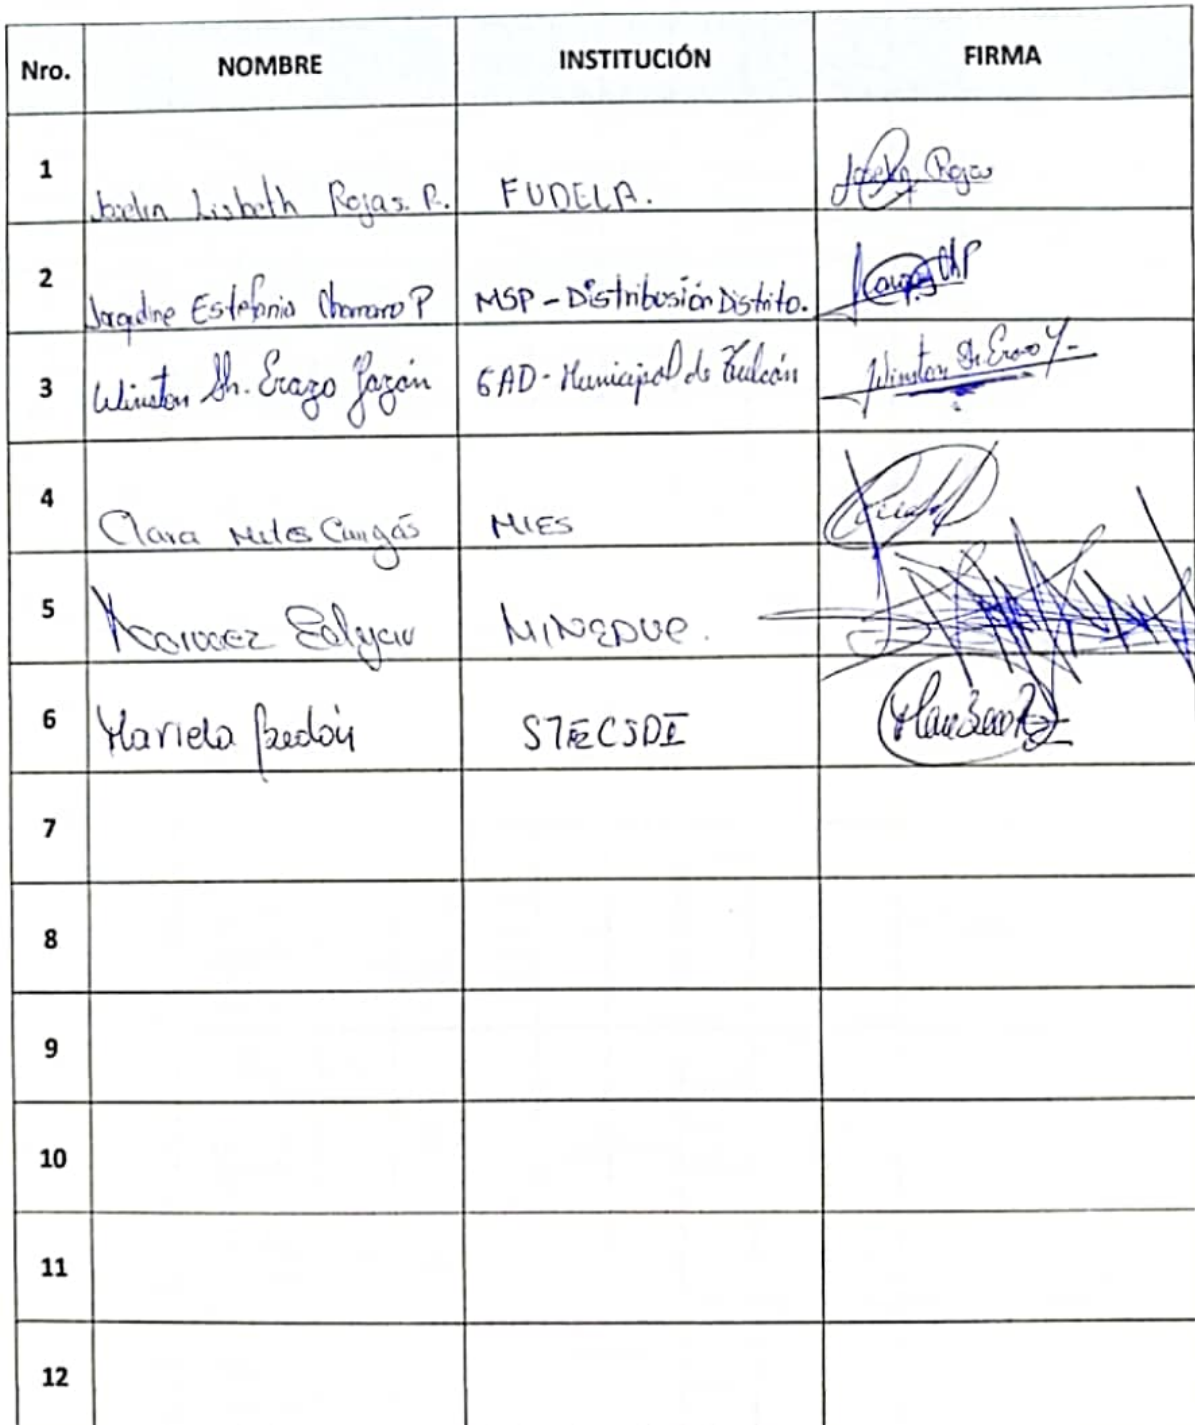 Nro. NOMBRE INSTITUCIÓN FIRMA
1 Joselin Lisbeth Rojas. R. FUDELA. Joselin Rojas
2 Jaqueline Estefania Chamorro P MSP - Distribusión Distrito.
3 Winston Sh. Erazo GAD - Municipal de Tulcán Winston Sh. Erazo Y-
4 Clara Cungás MIES
5 Narvaez Edgar MINEDUC.
6 Mariela Bedón STECSDI
7
8
9
10
11
12